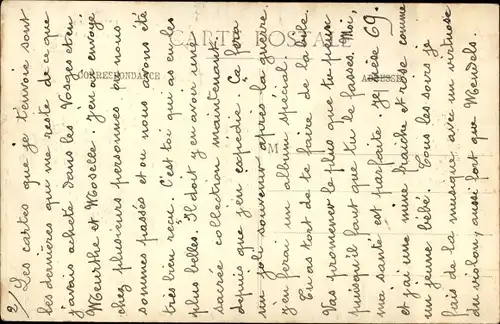 CARTE POSTALE
CORRESPONDANCE
ADRESSE
M
2/ Les cartes que je t'envoie sont
les dernières qui me reste de ce que
j'avais acheté dans les Vosges et en
Meurthe et Moselle. J'en ai envoyé
chez plusieurs personnes où nous
sommes passés et où nous avons été
très bien reçu. C'est toi qui as eu les
plus belles. Il doit y en avoir une
sacrée collection maintenant
depuis que j'en expédie. Ça fera
un joli souvenir après la guerre.
J'en ferai un album spécial.
Tu as tort de te faire de la bile.
Vas promener le plus que tu peux
puisqu'il faut que tu le fasses. Moi,
ma santé est parfaite. Je pèse 69.
et j'ai une mine fraiche et rose comme
un jeune bébé. Tous les soirs je
fais de la musique avec un virtuose
du violon, aussi fort que Mendels